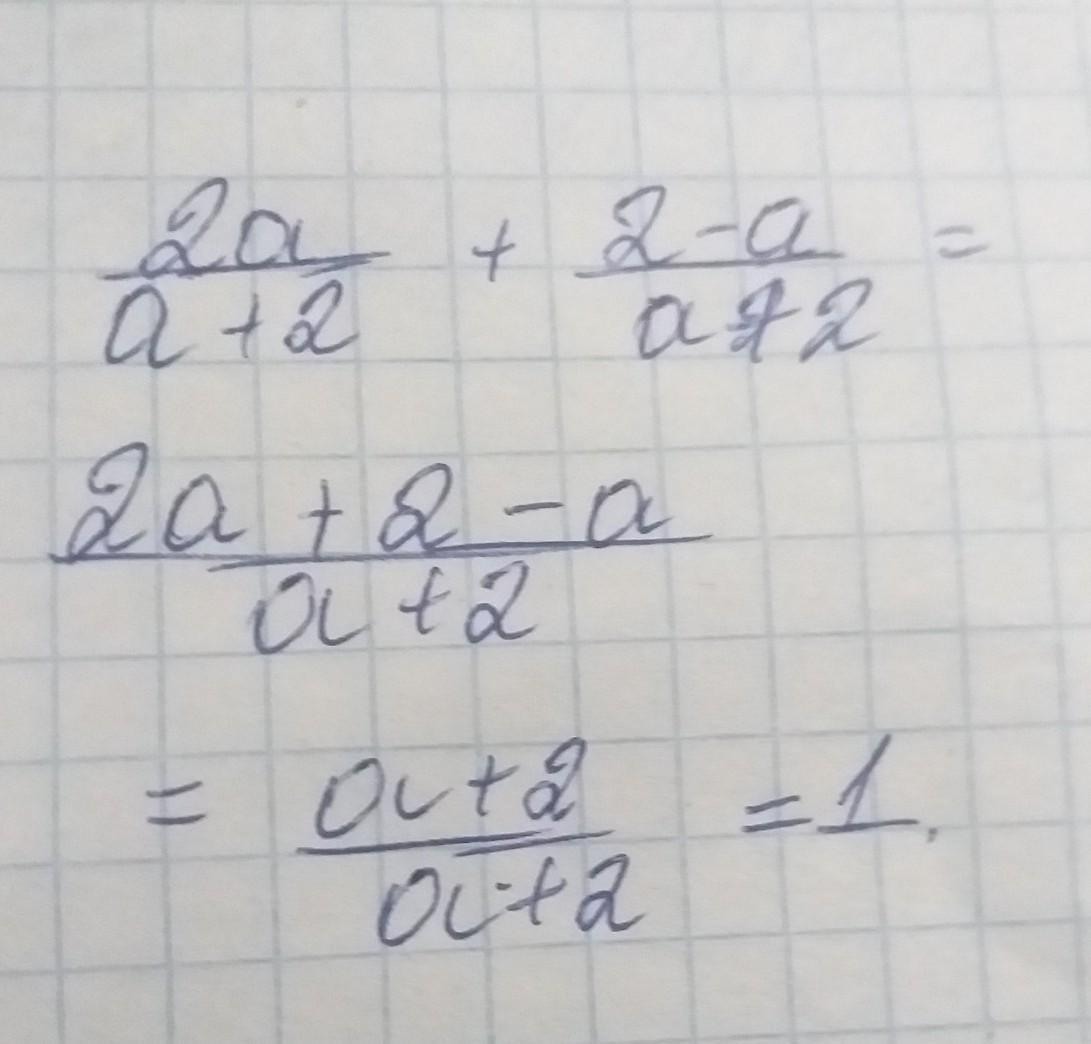 2a/(a+2) + (2-a)/(a+2) =
(2a+2-a)/(a+2)
= (a+2)/(a+2) = 1.